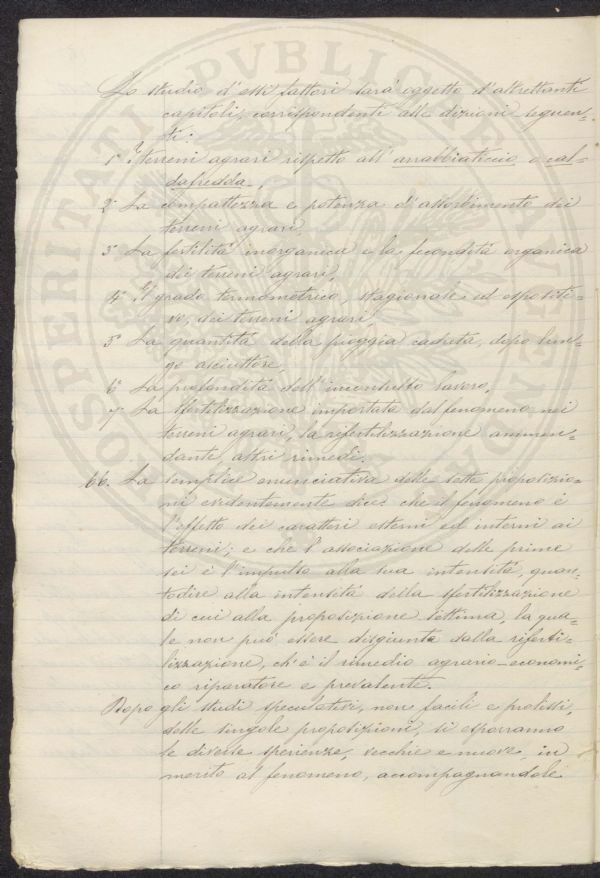 Lo studio d'essi fattori sarà oggetto d'altrettanti
capitoli, corrispondenti alle dizioni seguen-
ti:
1° I terreni agrari rispetto all'arrabbiaticcio o cal-
dafredda,
2° La compattezza e potenza d'assorbimento dei
terreni agrari,
3° La fertilità inorganica e la fecondità organica
dei terreni agrari,
4° Il grado termometrico, stagionale ed espositi-
vo, dei terreni agrari,
5° La quantità della pioggia caduta, dopo lun-
go asciuttore,
6° La profondità dell'inconsulto lavoro,
7° La sfertilizzazione importata dal fenomeno nei
terreni agrari, la rifertilizzazione ammen-
dante altri rimedi.
66. La semplice enunciativa delle sette proposizio-
ni evidentemente dice: che il fenomeno è
l'effetto dei caratteri esterni ed interni ai
terreni; e che l'associazione delle prime
sei è l'impulso alla sua intensità, quan-
todire alla intensità della sfertilizzazione
di cui alla proposizione settima, la qua-
le non può essere disgiunta dalla riferti-
lizzazione, ch'è il rimedio agrario-economi-
co riparatore e prevalente.
Dopo gli studi speculativi, non facili e prolissi,
delle singole proposizioni, si esporranno
le diverse sperienze, vecchie e nuove, in
merito al fenomeno, accompagnandole
PROSPERITATI PVBLICAE AVGENDAE